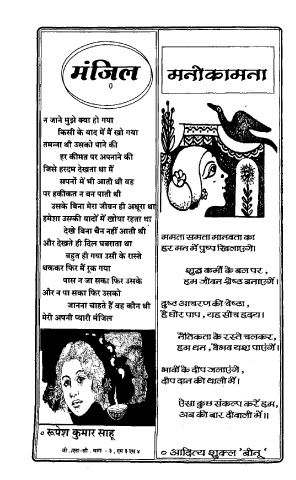 मंजिल
न जाने मुझे क्या हो गया
किसी के याद में मैं खो गया
तमन्ना थी उसको पाने की
हर कीमत पर अपनाने की
जिसे हरदम देखता था मैं
सपनों में भी आती थी वह
पर हकीकत न बन पाती थी
उसके बिना मेरा जीवन ही अधूरा था
हमेशा उसकी यादों में खोया रहता था
देखे बिना चैन नहीं आती थी
और देखते ही दिल घबराता था
बहुत हो गया उसी के रास्ते
थककर फिर मैं रुक गया
पास न जा सका फिर उसके
और न पा सका फिर उसको
जानना चाहते हैं वह कौन थी
मेरी अपनी प्यारी मंजिल
○ रूपेश कुमार साहू
बी.एस-सी. भाग - ३, एम ३ एम ४
मनोकामना
ममता समता मानवता का
हर मन में पुष्प खिलाएंगे।
शुद्ध कर्मों के बल पर,
हम जीवन श्रेष्ठ बनाएंगे।
दुष्ट आचरण की चेष्ठा,
है घोर पाप, यह सोच हृदय।
नैतिकता के रस्ते चलकर,
हम धन, वैभव यश पाएंगे।
भावों के दीप जलाएंगे,
दीप दान की थाली में।
ऐसा कुछ संकल्प करें हम,
अब की बार दीवाली में॥
○ आदित्य शुक्ल 'बीनू'